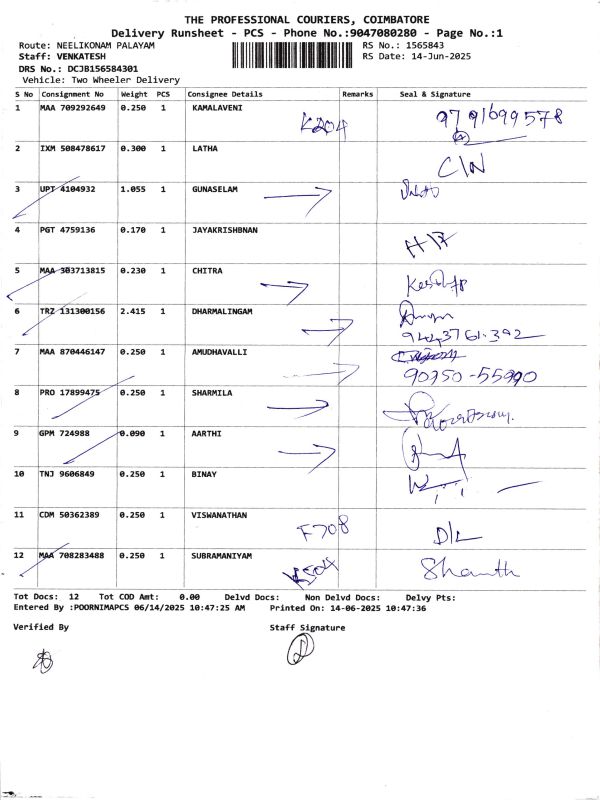 THE PROFESSIONAL COURIERS, COIMBATORE
Delivery Runsheet - PCS - Phone No.:9047080280 - Page No.:1
Route: NEELIKONAM PALAYAM RS No.: 1565843
Staff: VENKATESH RS Date: 14-Jun-2025
DRS No.: DCJB156584301
Vehicle: Two Wheeler Delivery
S No Consignment No Weight PCS Consignee Details Remarks Seal & Signature
1 MAA 709292649 0.250 1 KAMALAVENI K204 9791699578
2 IXM 508478617 0.300 1 LATHA C/N
3 UPT 4104932 1.055 1 GUNASELAM
4 PGT 4759136 0.170 1 JAYAKRISHBNAN
5 MAA 303713815 0.230 1 CHITRA
6 TRZ 131300156 2.415 1 DHARMALINGAM
7 MAA 870446147 0.250 1 AMUDHAVALLI
8 PRO 17899475 0.250 1 SHARMILA
9 GPM 724988 0.090 1 AARTHI
10 TNJ 9606849 0.250 1 BINAY
11 CDM 50362389 0.250 1 VISWANATHAN F708 D/L
12 MAA 708283488 0.250 1 SUBRAMANIYAM Shanth
Tot Docs: 12 Tot COD Amt: 0.00 Delvd Docs: Non Delvd Docs: Delvy Pts:
Entered By :POORNIMAPCS 06/14/2025 10:47:25 AM Printed On: 14-06-2025 10:47:36
Verified By Staff Signature